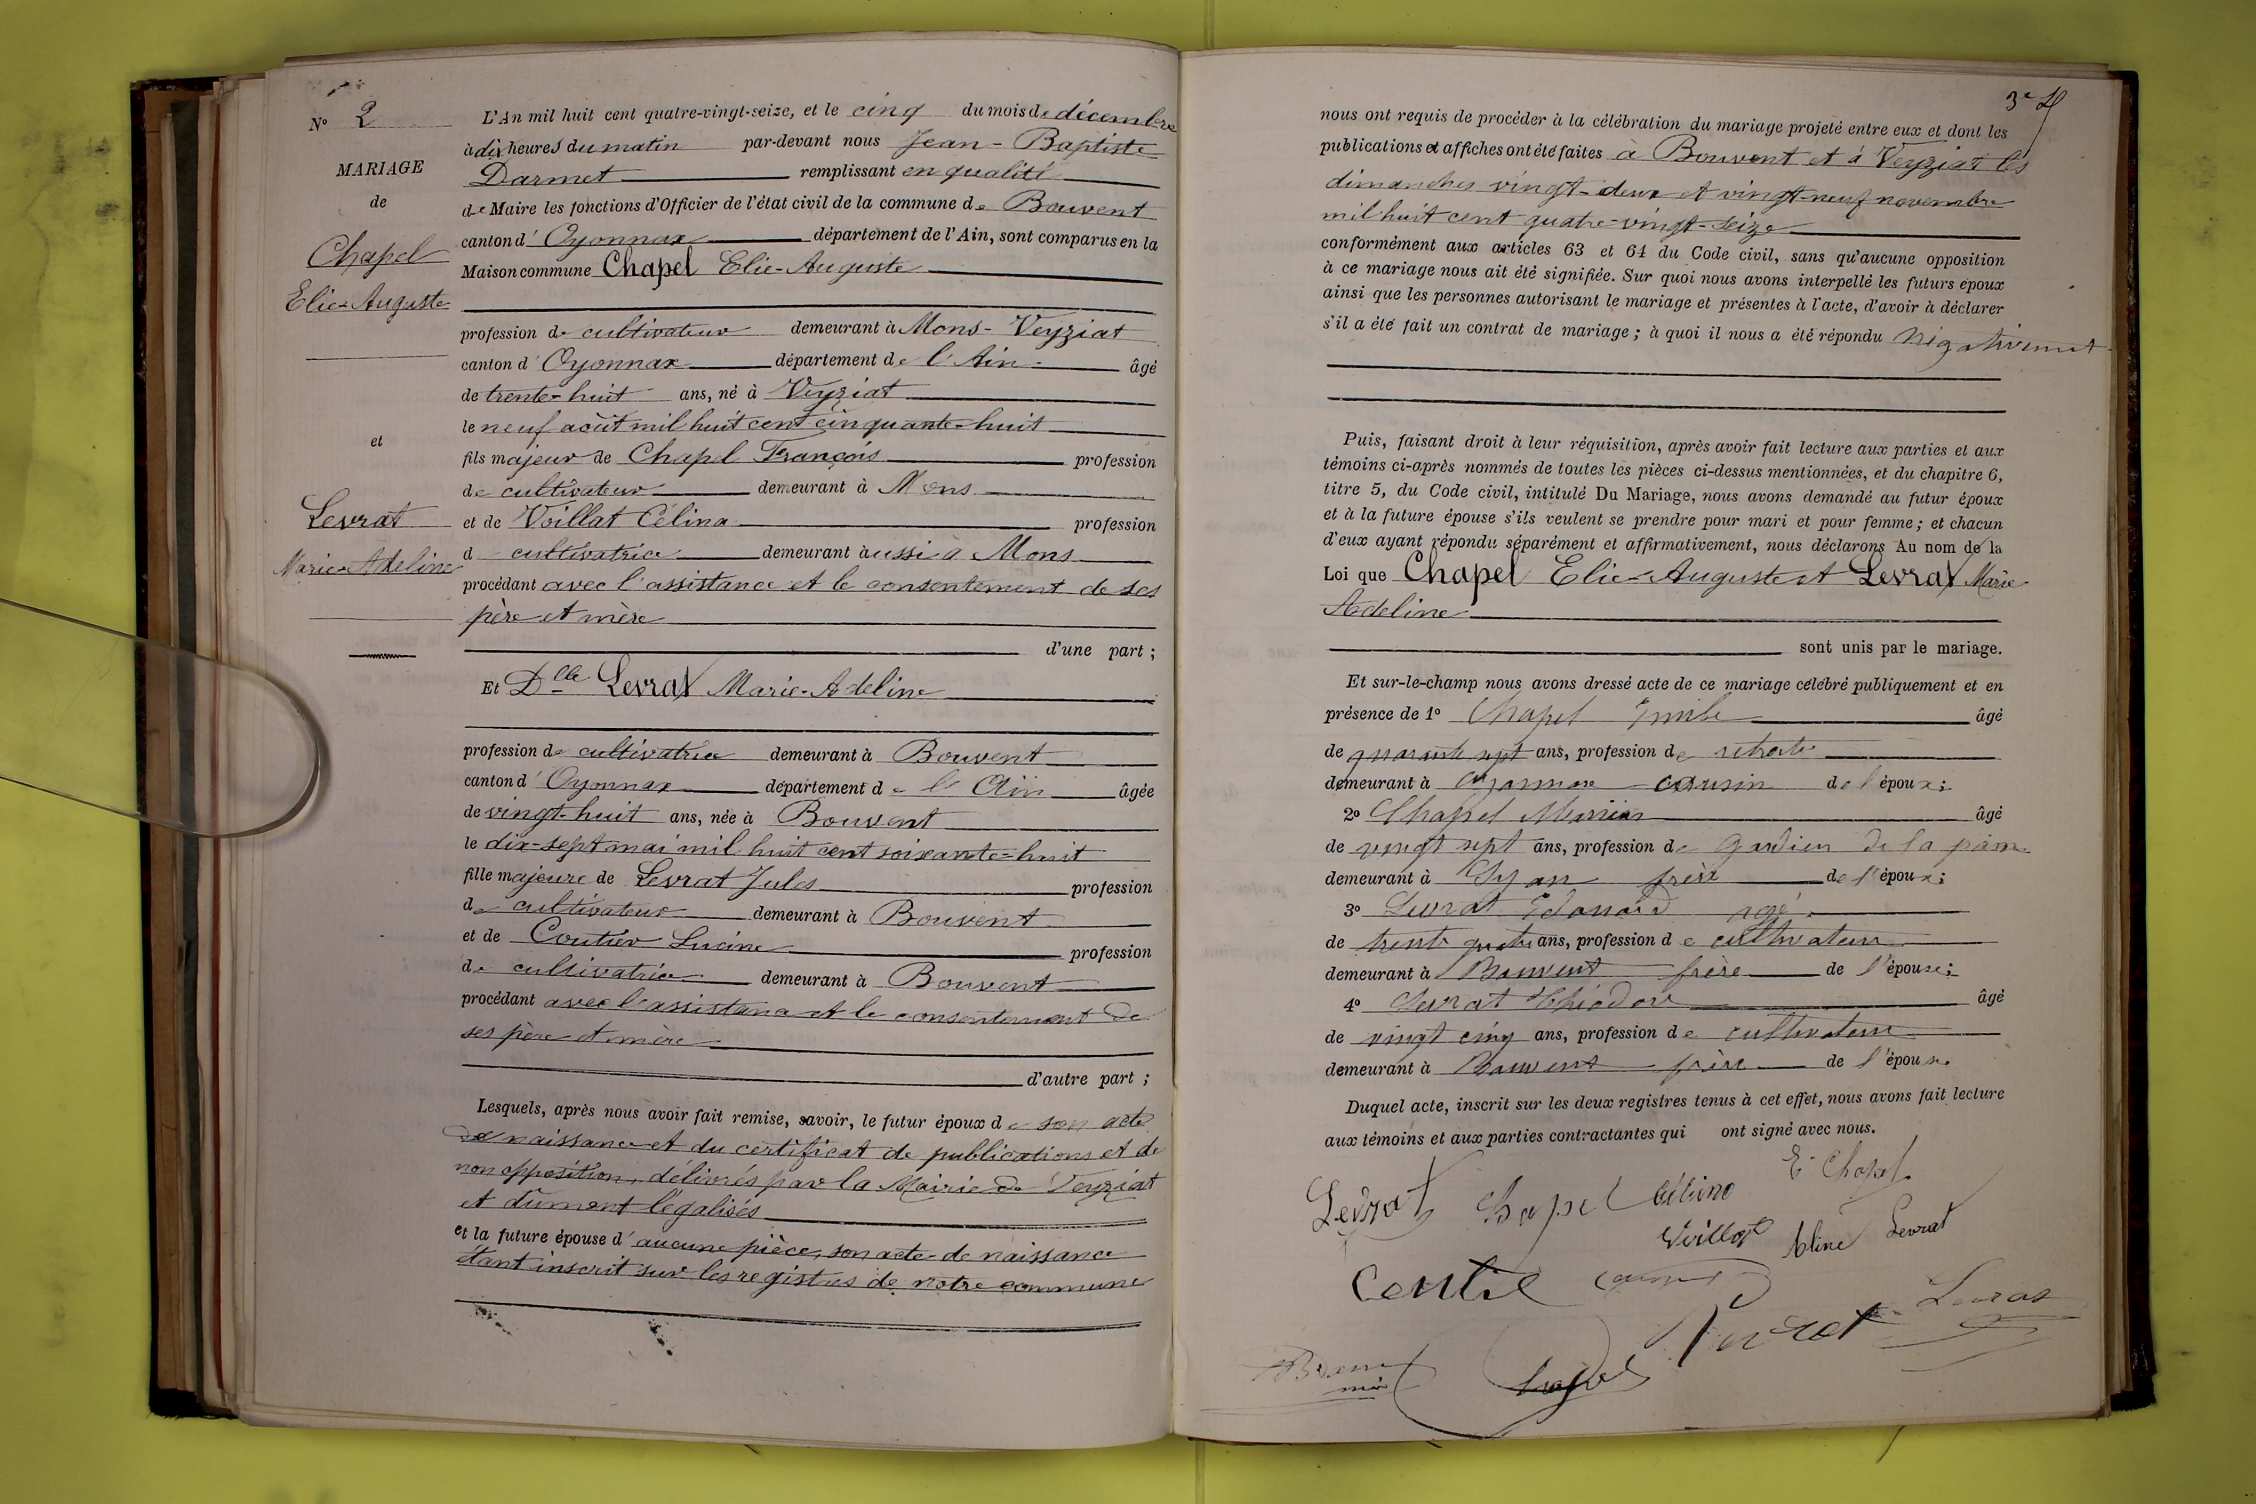 N° 2
MARIAGE
de
Chapel
Elie-Auguste
et
Levrat
Marie-Adeline
L'An mil huit cent quatre-vingt-seize, et le cinq du mois de décembre
à dix heures du matin par-devant nous Jean-Baptiste
Darmet remplissant en qualité
de Maire les fonctions d'Officier de l'état civil de la commune de Bouvent
canton d' Oyonnax département de l'Ain, sont comparus en la
Maison commune Chapel Elie-Auguste
profession de cultivateur demeurant à Mons-Veyziat
canton d' Oyonnax département de l'Ain âgé
de trente-huit ans, né à Veyziat
le neuf août mil huit cent cinquante-huit
fils majeur de Chapel François profession
de cultivateur demeurant à Mons
et de Voillat Célina profession
d cultivatrice demeurant aussi à Mons
procédant avec l'assistance et le consentement de ses
père et mère
d'une part ;
Et Dlle Levrat Marie-Adeline
profession de cultivatrice demeurant à Bouvent
canton d' Oyonnax département de l'Ain âgée
de vingt-huit ans, née à Bouvent
le dix-sept mai mil huit cent soixante-huit
fille majeure de Levrat Jules profession
de cultivateur demeurant à Bouvent
et de Coutier Lucine profession
de cultivatrice demeurant à Bouvent
procédant avec l'assistance et le consentement de
ses père et mère
d'autre part ;
Lesquels, après nous avoir fait remise, savoir, le futur époux de son acte
de naissance et du certificat de publications et de
non opposition, délivrés par la Mairie de Veyziat
et dûment légalisés
et la future épouse d'aucune pièce, son acte de naissance
étant inscrit sur les registres de notre commune
3e
nous ont requis de procéder à la célébration du mariage projeté entre eux et dont les
publications et affiches ont été faites à Bouvent et à Veyziat les
dimanches vingt-deux et vingt-neuf novembre
mil huit cent quatre-vingt-seize
conformément aux articles 63 et 64 du Code civil, sans qu'aucune opposition
à ce mariage nous ait été signifiée. Sur quoi nous avons interpellé les futurs époux
ainsi que les personnes autorisant le mariage et présentes à l'acte, d'avoir à déclarer
s'il a été fait un contrat de mariage ; à quoi il nous a été répondu négativement
Puis, faisant droit à leur réquisition, après avoir fait lecture aux parties et aux
témoins ci-après nommés de toutes les pièces ci-dessus mentionnées, et du chapitre 6,
titre 5, du Code civil, intitulé Du Mariage, nous avons demandé au futur époux
et à la future épouse s'ils veulent se prendre pour mari et pour femme ; et chacun
d'eux ayant répondu séparément et affirmativement, nous déclarons Au nom de la
Loi que Chapel Elie-Auguste et Levrat Marie
Adeline
sont unis par le mariage.
Et sur-le-champ nous avons dressé acte de ce mariage célébré publiquement et en
présence de 1° Chapel Emile âgé
de quarante sept ans, profession de retraité
demeurant à Oyonnax cousin de l'époux ;
2° Chapel âgé
de vingt sept ans, profession de gardien de la paix
demeurant à Lyon frère de l'époux ;
3° Levrat Edouard agé
de trente quatre ans, profession de cultivateur
demeurant à Bouvent frère de l'épouse ;
4° Levrat Théodore âgé
de vingt cinq ans, profession de cultivateur
demeurant à Bouvent frère de l'épouse
Duquel acte, inscrit sur les deux registres tenus à cet effet, nous avons fait lecture
aux témoins et aux parties contractantes qui ont signé avec nous.
E Chapel
Levrat Chapel Céline
Voillat Aline Levrat
Levrat
Chapel